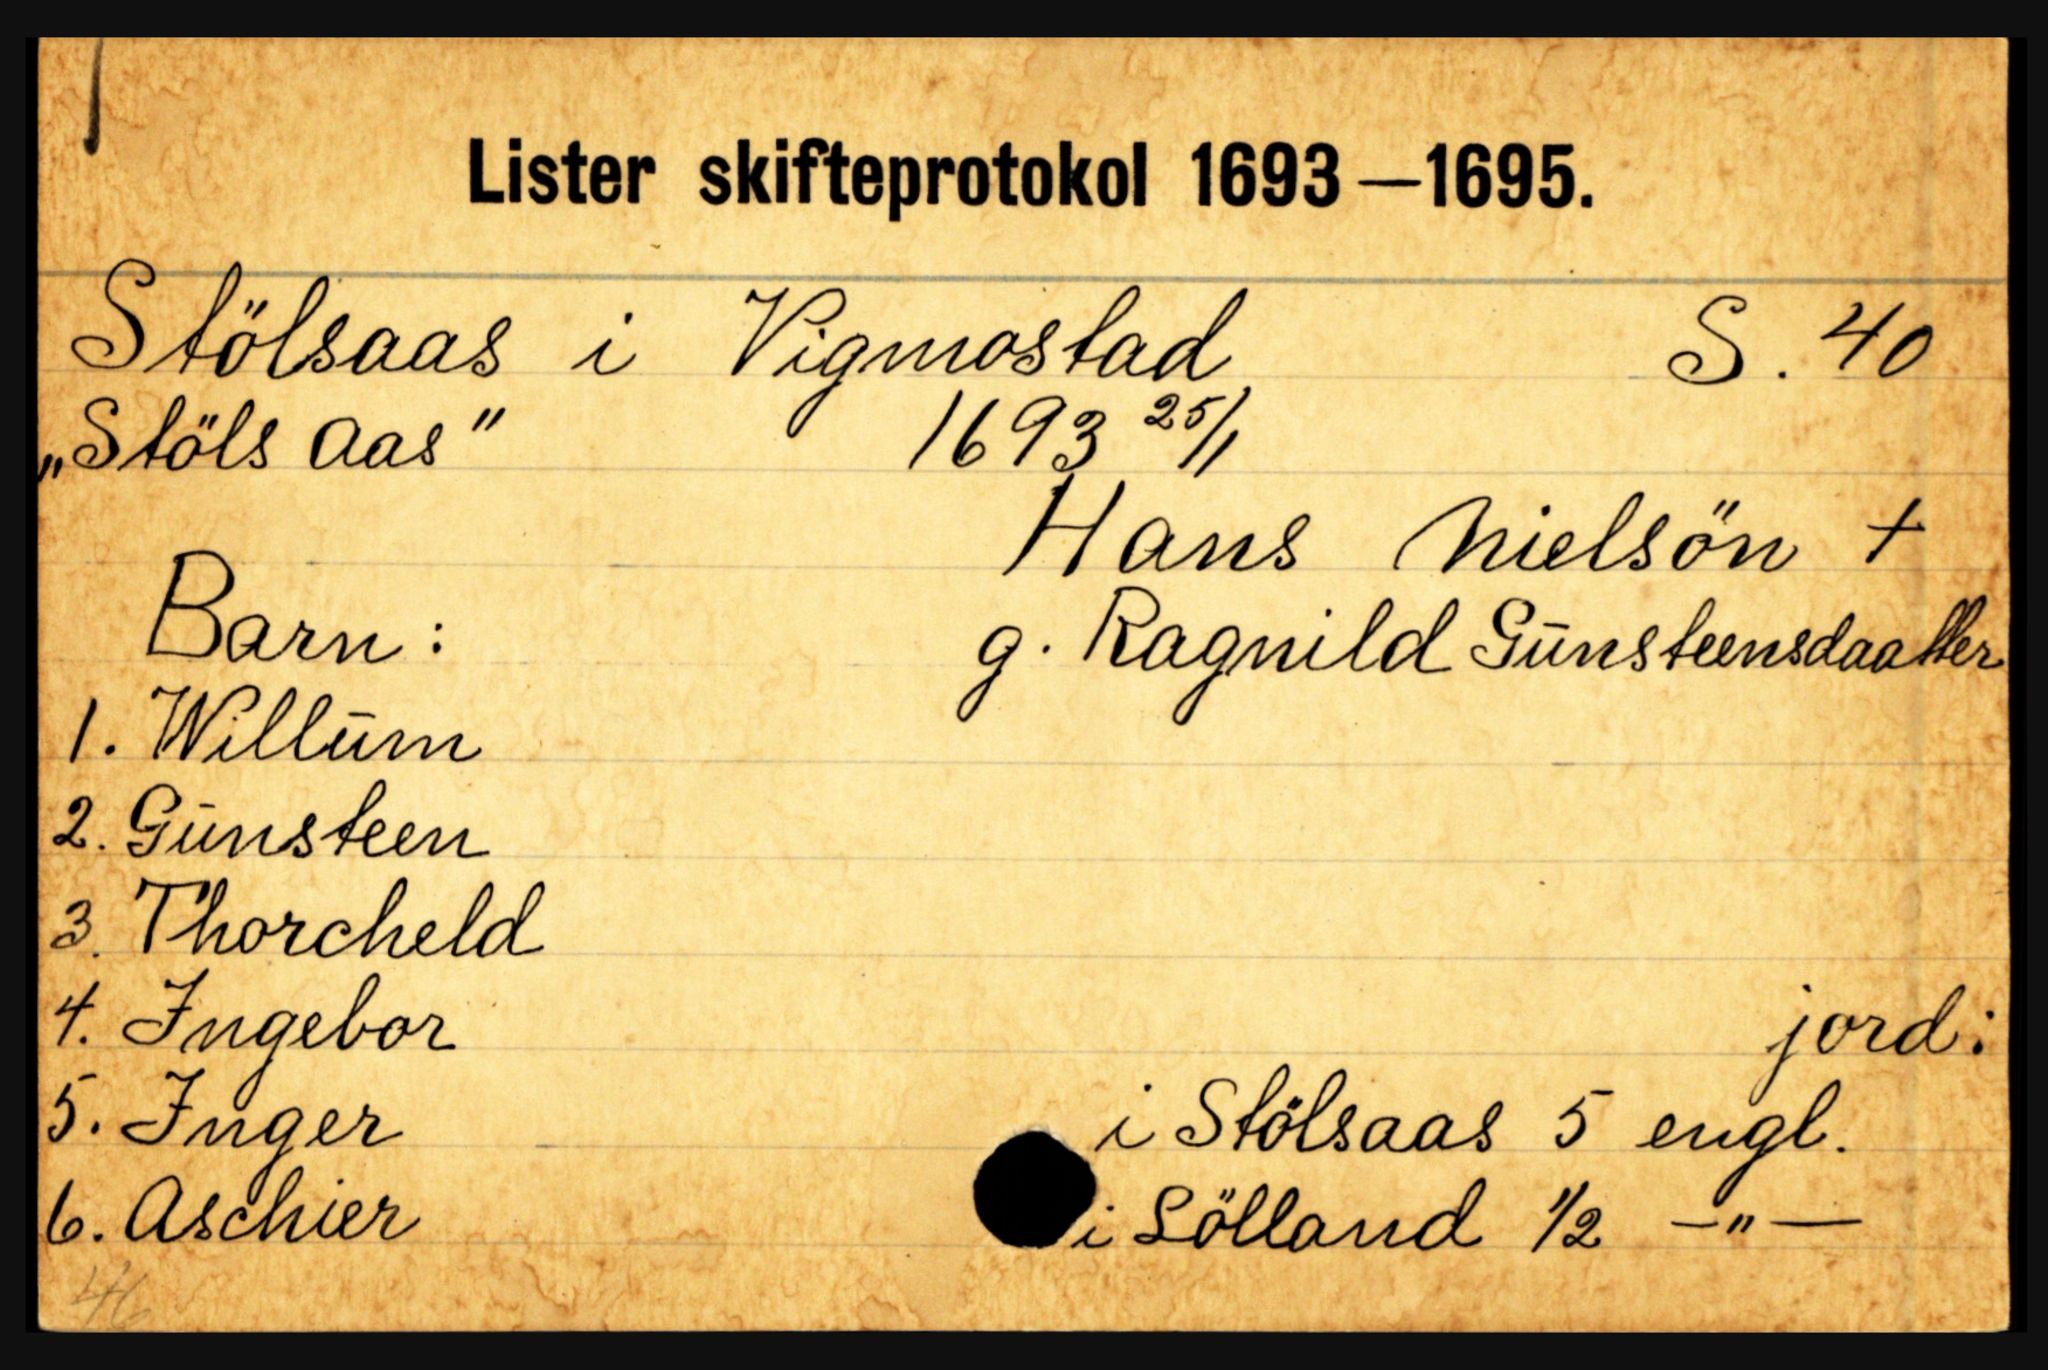 Lister skifteprotokol 1693—1695.
Stölsaas i Vigmostad S. 40
„Stöls aas" 1693 25/11
Hans Nielsön +
Barn: g. Ragnild Gūnsteensdaatter
1. Willūm
2. Gūnsteen
3. Thorcheld
4. Ingebor jord:
5. Inger i Stölsaas 5 engl.
6. Aschier i Lölland 1/2 —"—
46